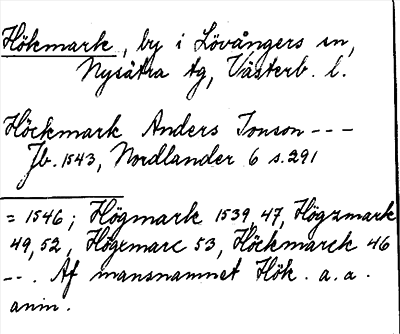 Hökmark, by i Lövångers sn,
Nysätra tg, Västerb. l.
Höckmark Anders Jonson ---
Jb. 1543, Nordlander 6 s. 291
= 1546; Högmark 1539, 47, Högzmark
49, 52, Högxmarc 53, Höckmarck 46
--. Af mansnamnet Hök. a. a.
anm.